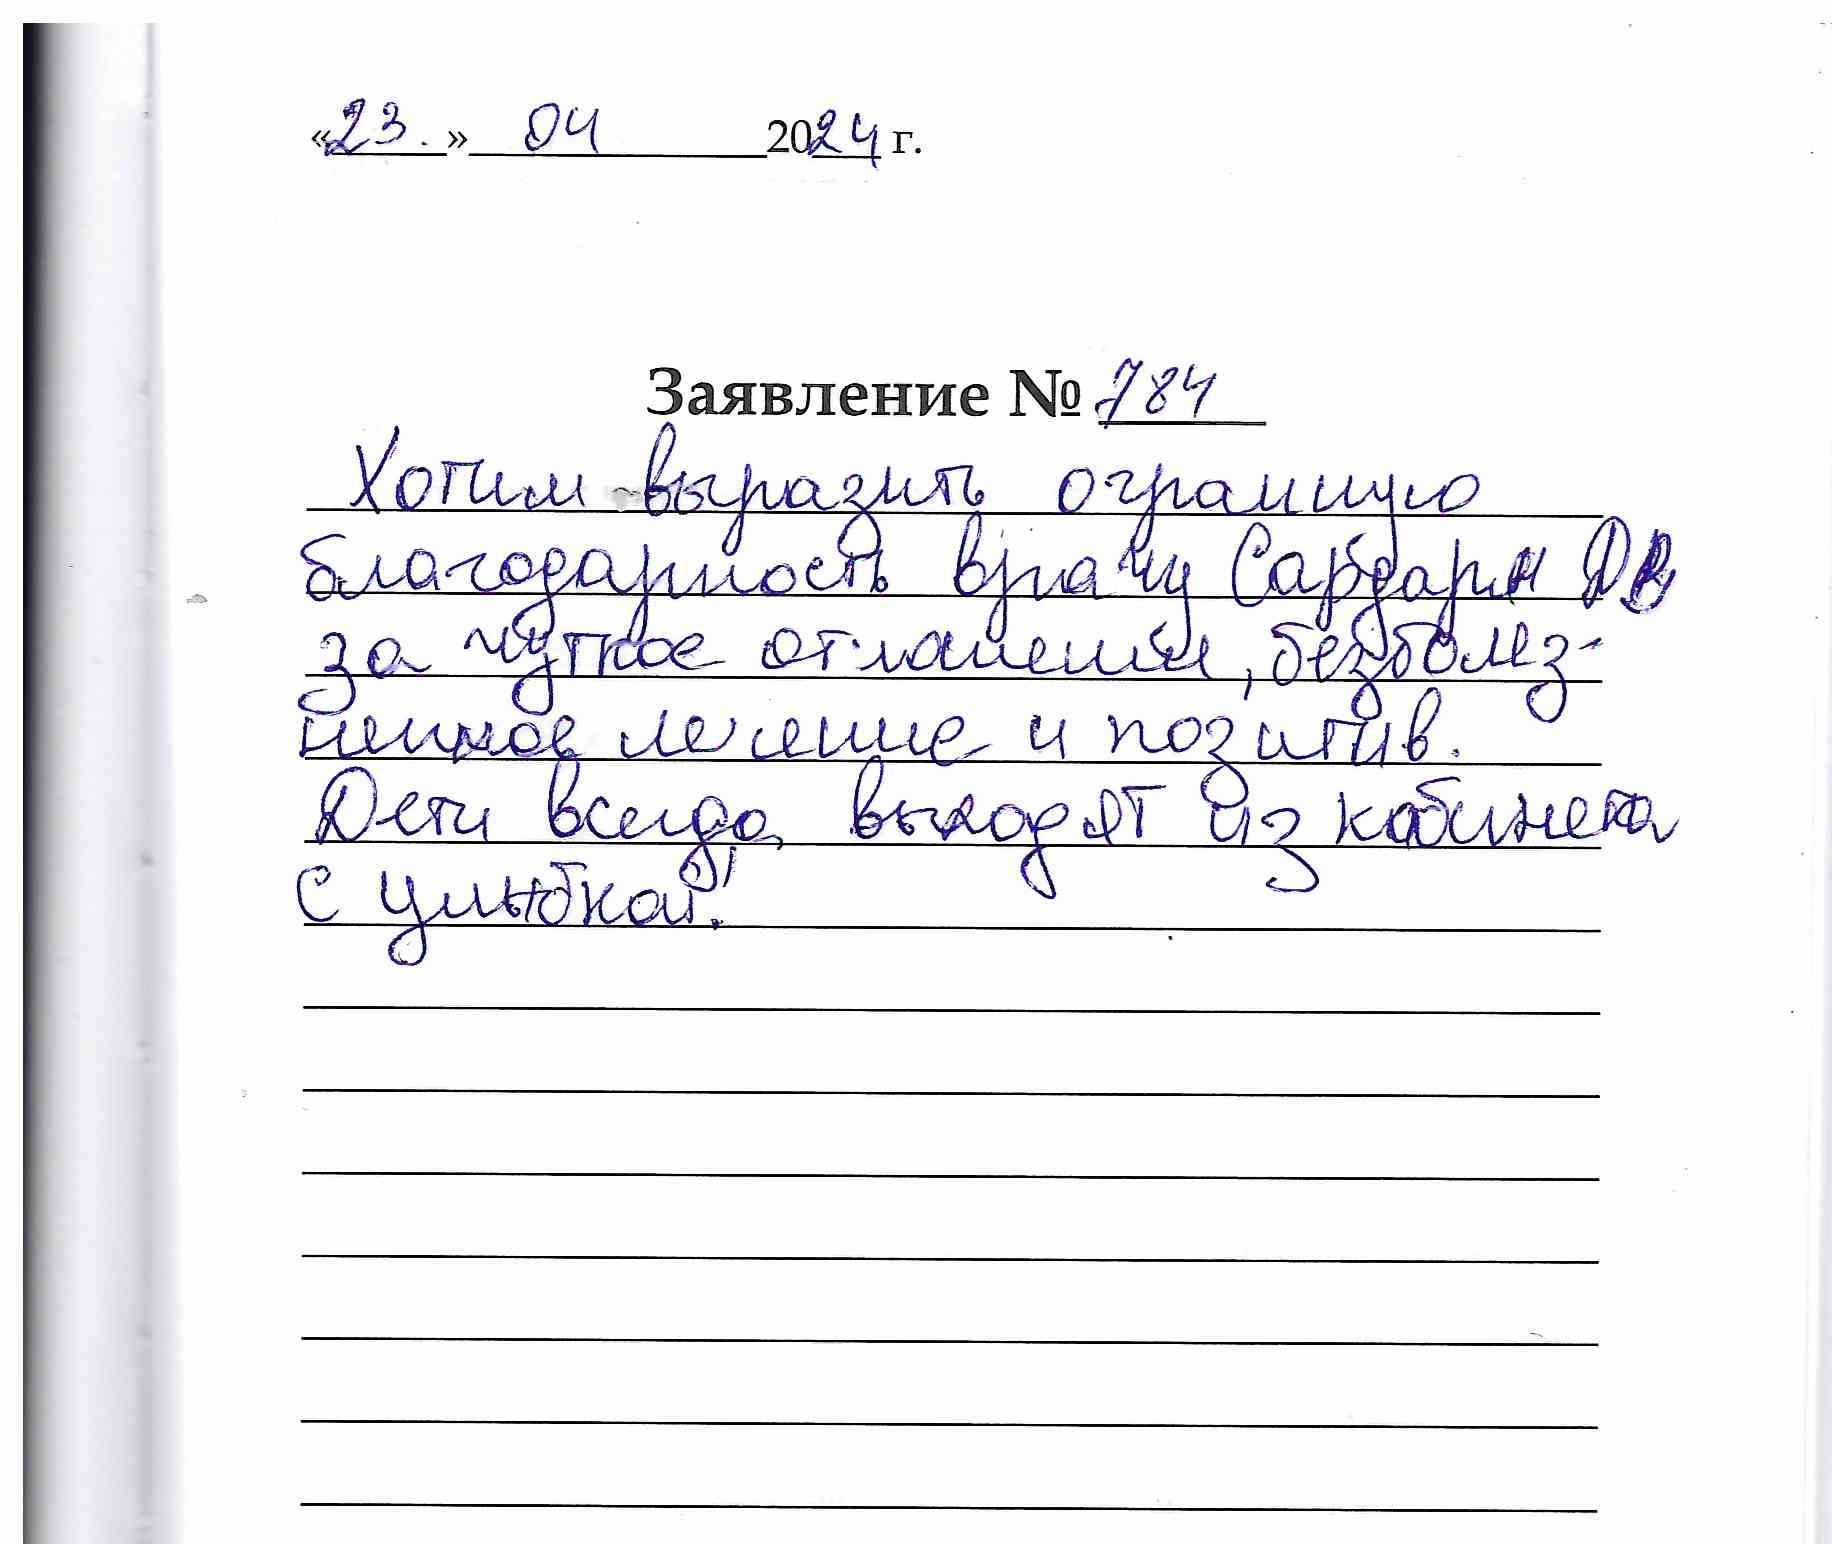 «23.» 04 2024 г.
Заявление № 784
Хотим выразить огромную
благодарность врачу Сардарян ДВ
за чуткое отношения, безболез-
ненное лечение и позитив.
Дети всегда, выходят из кабинета
с улыбкой!